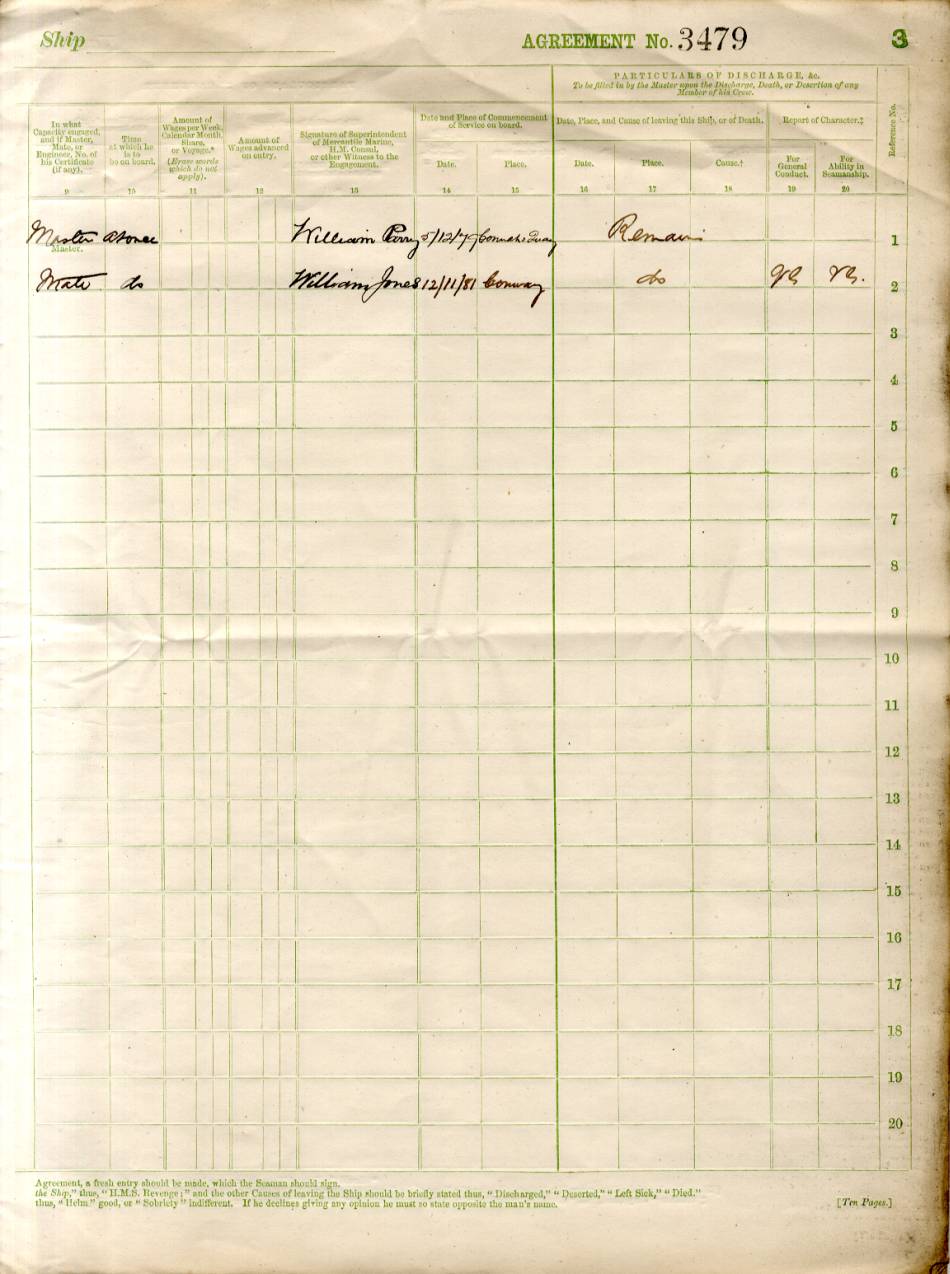 Ship AGREEMENT No. 3479 3
PARTICULARS OF DISCHARGE, &c.
To be filled in by the Master upon the Discharge, Death, or Desertion of any
Member of his Crew.
In what
Capacity engaged,
and if Master,
Mate, or
Engineer, No. of
his Certificate
(if any).
Time
at which he
is to
be on board.
Amount of
Wages per Week,
Calendar Month,
Share,
or Voyage.*
(Erase words
which do not
apply).
Amount of
Wages advanced
on entry.
Signature of Superintendent
of Mercantile Marine,
H.M. Consul,
or other Witness to the
Engagement.
Date and Place of Commencement
of Service on board.
Date. Place.
Date, Place, and Cause of leaving this Ship, or of Death.
Date. Place. Cause.†
Report of Character.‡
For
General
Conduct.
For
Ability in
Seamanship.
Reference No.
9 10 11 12 13 14 15 16 17 18 19 20
Master at once William Parry 5/12/79 Connahs Quay Remains 1
Master.
Mate do William Jones 12/11/81 Conway do VG VG. 2
3
4
5
6
7
8
9
10
11
12
13
14
15
16
17
18
19
20
Agreement, a fresh entry should be made, which the Seaman should sign.
the Ship," thus, "H.M.S. Revenge;" and the other Causes of leaving the Ship should be briefly stated thus, "Discharged," "Deserted," "Left Sick," "Died."
thus, "Helm" good, or "Sobriety" indifferent. If he declines giving any opinion he must so state opposite the man's name. [Ten Pages.]